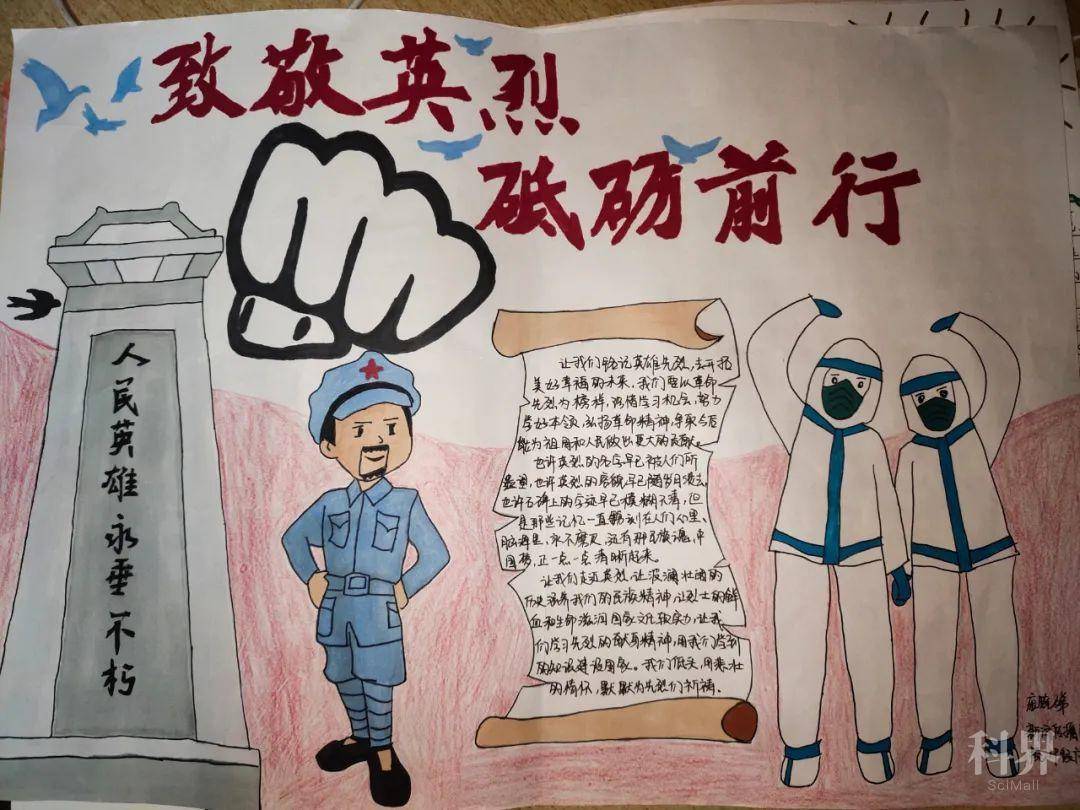 致敬英烈
砥砺前行
人民英雄永垂不朽
让我们铭记英雄先烈,去开拓
美好幸福的未来。我们要以革命
先烈为榜样,珍惜学习机会,努力
学好本领,弘扬革命精神,争取今后
能为祖国和人民做出更大的贡献。
也许英烈的名字早已被人们所
也许英烈的容貌早已随岁月逝去,
也许石碑上的字迹早已模糊不清,但
是那些记忆一直镌刻在人们心里、
脑海里,永不磨灭,还有那民族魂,中
国梦,正一点一点清晰起来。
让我们走近英烈,让波澜壮阔的
历史涵养我们的民族精神,让烈士的鲜
血和生命滋润国家文化软实力,让我
们学习先烈的献身精神,用我们学到
的知识建设国家。我们低头,用悲壮
的情怀,默默为先烈们祈祷。
科界
SciMall